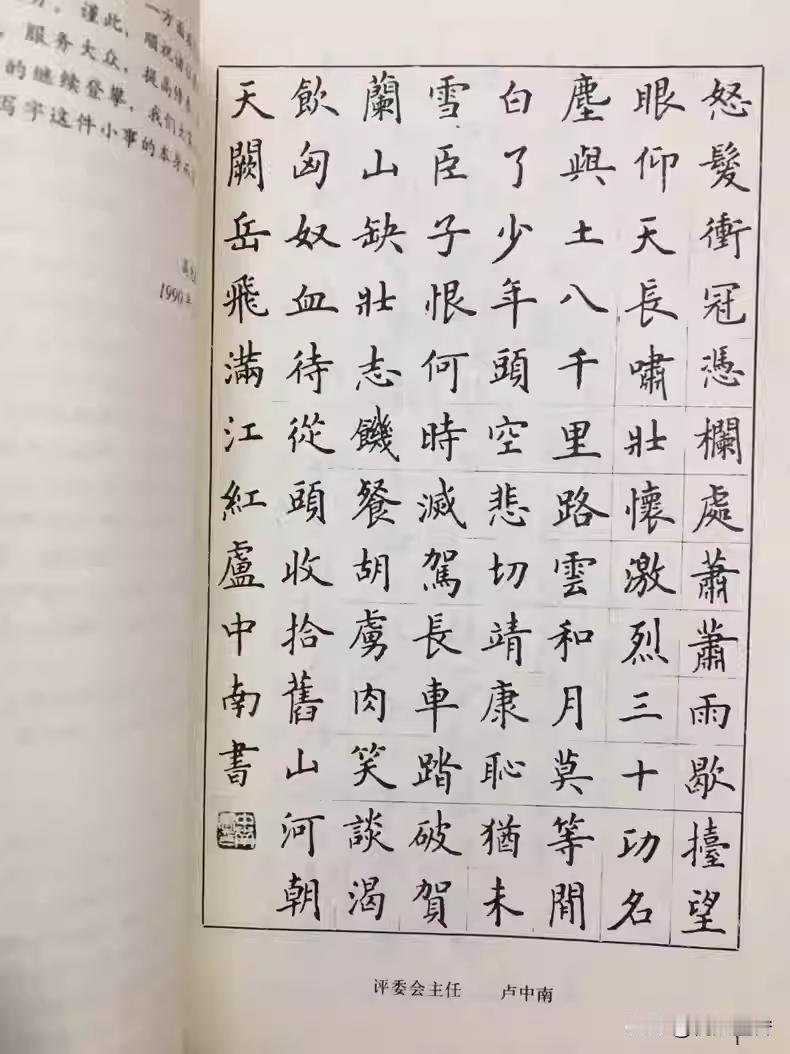 一方面
谨此，顺祝诸
服务大众，提高
的继续登攀，我们大家
写字这件小事的本身
1990年
怒髮衝冠憑欄處蕭蕭雨歇擡望
眼仰天長嘯壯懷激烈三十功名
塵與土八千里路雲和月莫等閒
白了少年頭空悲切靖康恥猶未
雪臣子恨何時滅駕長車踏破賀
蘭山缺壯志饑餐胡虜肉笑談渴
飲匈奴血待從頭收拾舊山河朝
天闕岳飛滿江紅盧中南書
评委会主任 卢中南
1